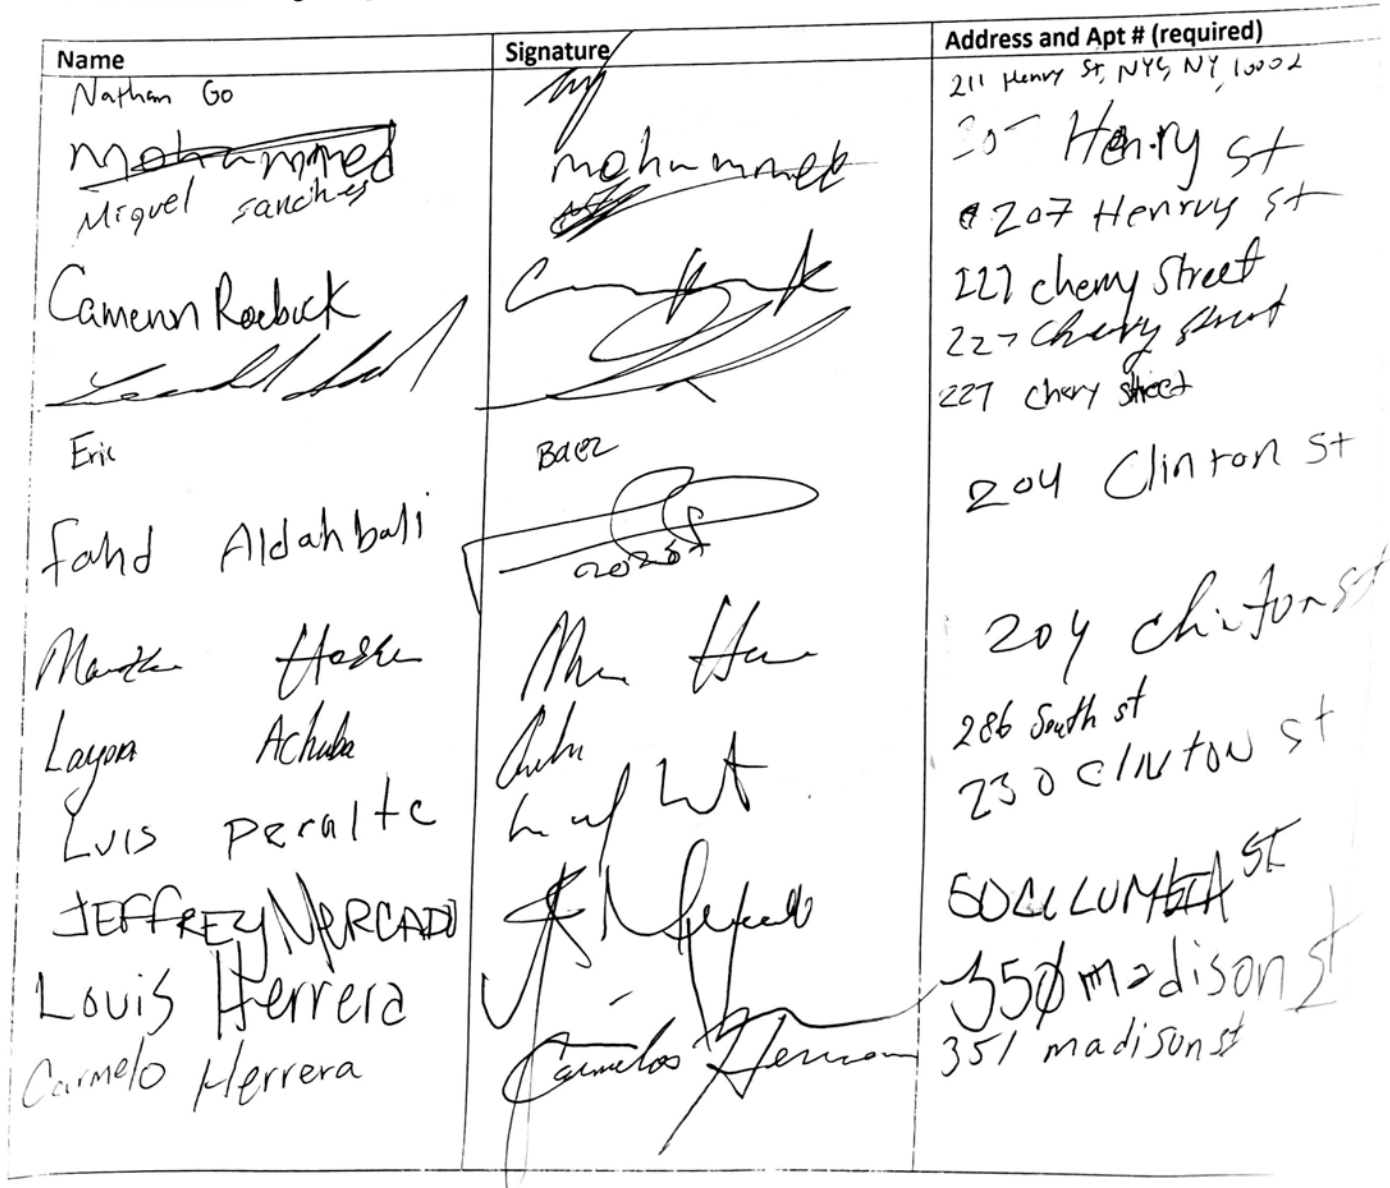 Name Signature Address and Apt # (required)
Nathan Go 211 Henry St, NYC, NY, 10002
mohammed mohammed Henry St
Miguel sanches 207 Henruy St
Cameron Roebuck 227 cherry Street
227 Cherry Street
Eric Baez 227 Chery Street
Fahd Aldahbali 204 Clinton St
204 Clinton St
Layon Achuba 286 South st
Luis Peralte 230 CLINTON St
JEFFREY MERCADO
Louis Herrera 350 madison St
Carmelo Herrera Carmelos Herrera 351 madison st